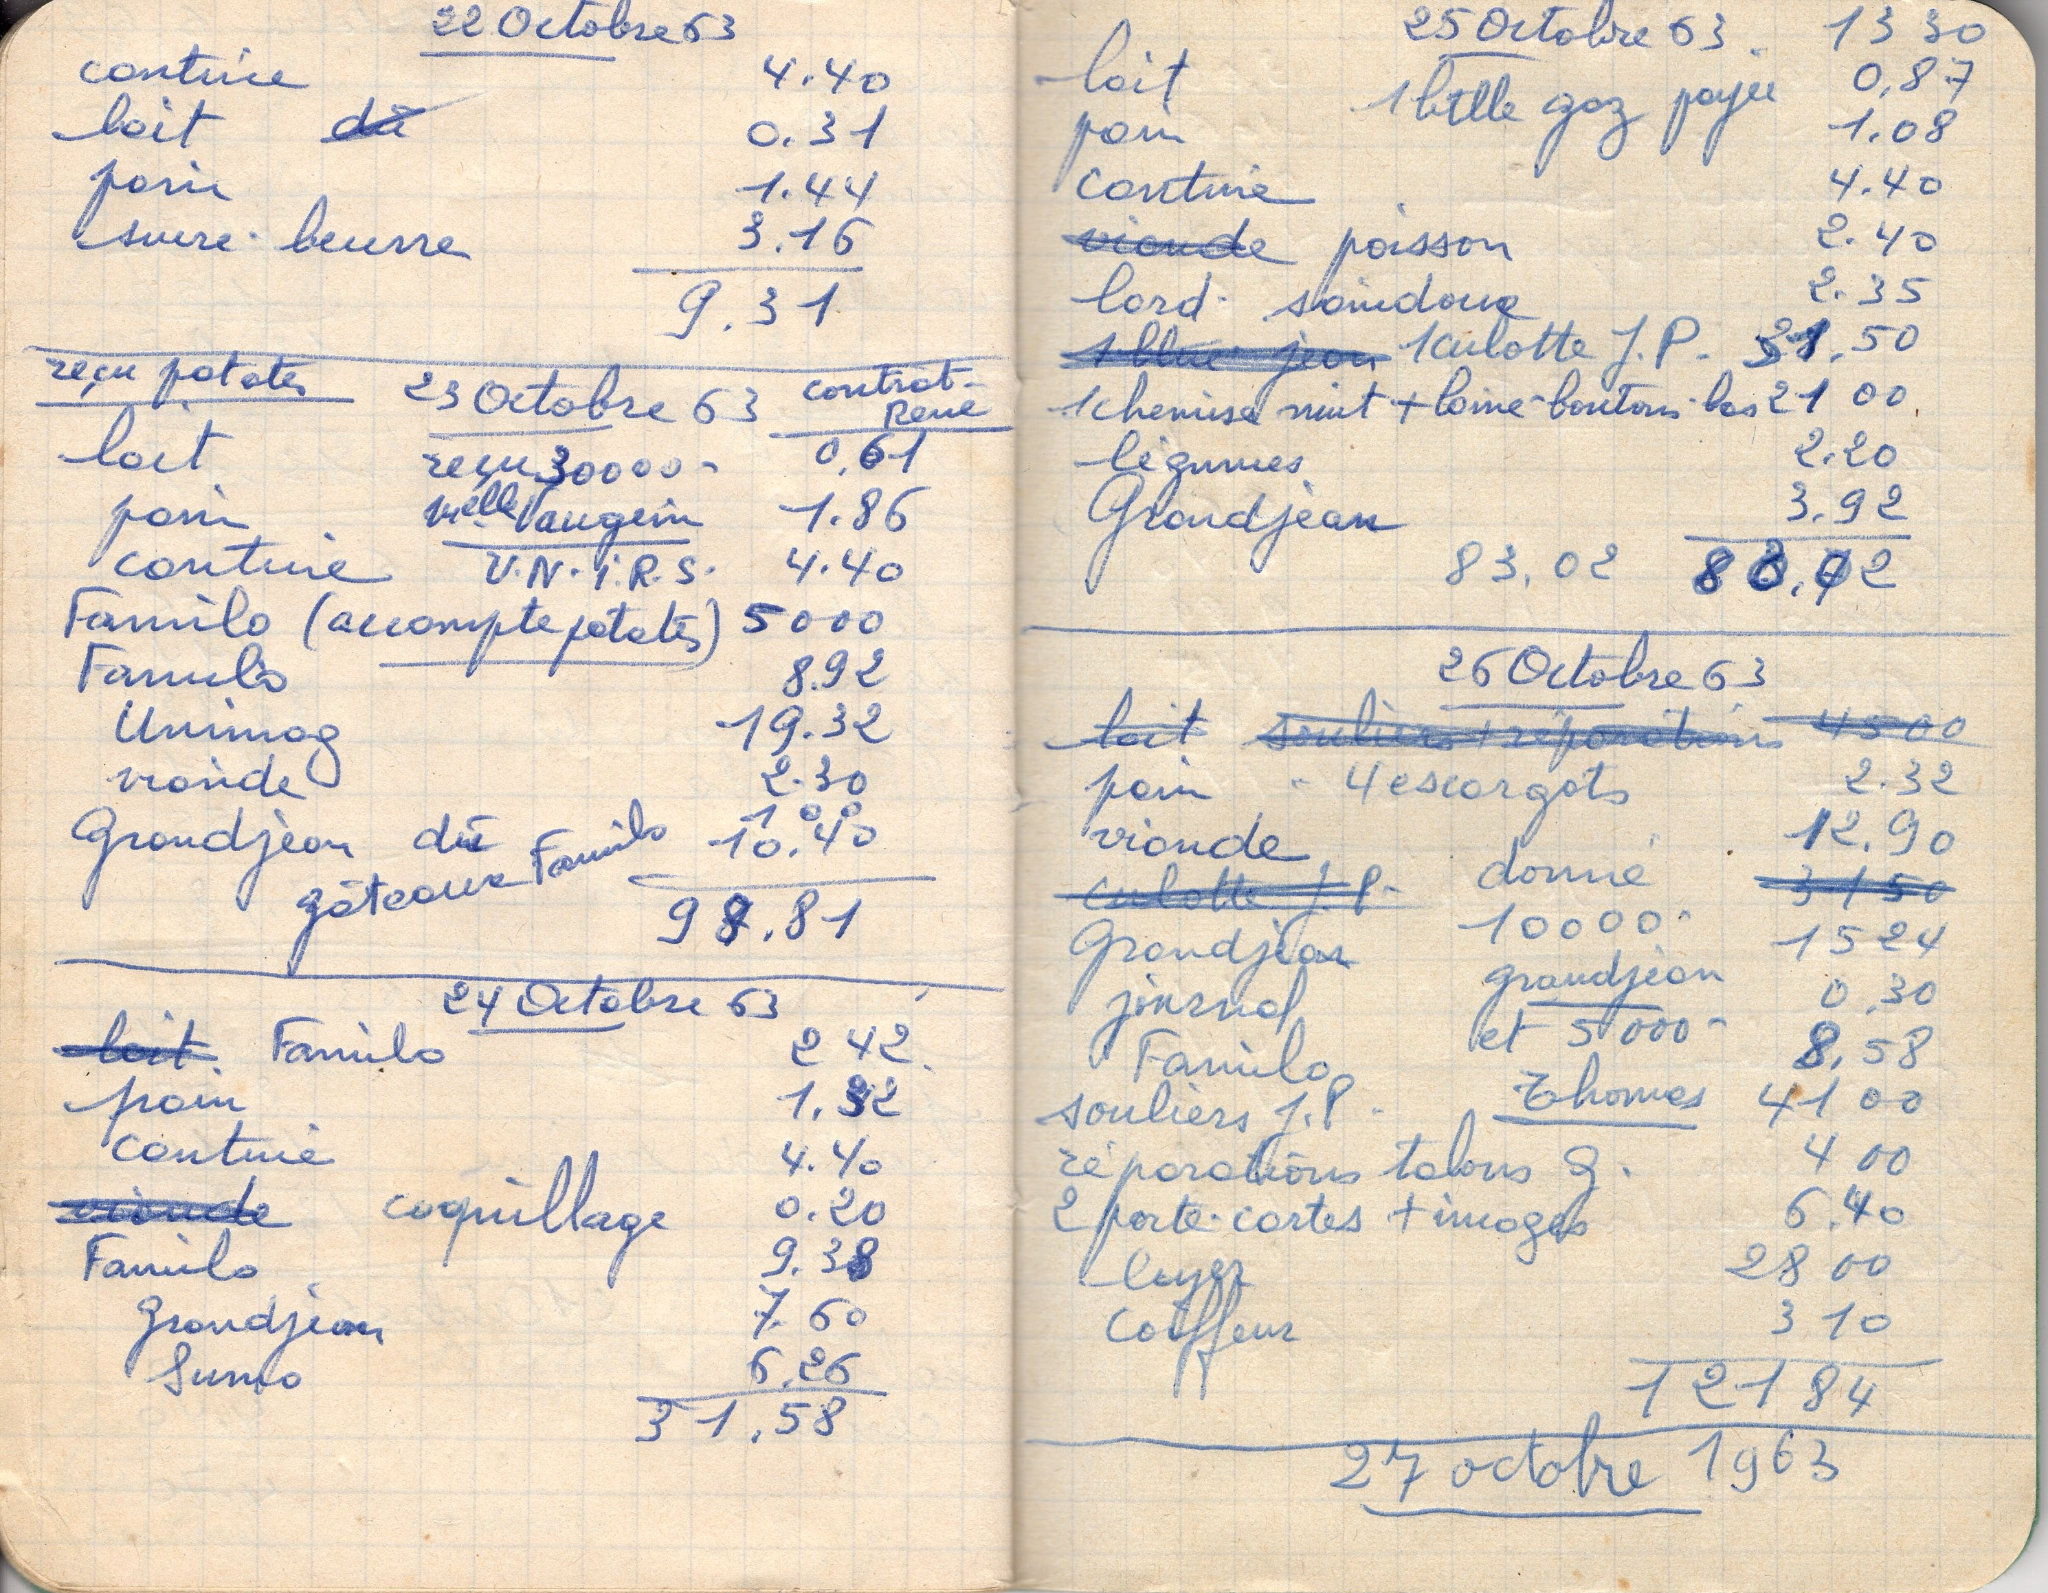 22 Octobre 63
cantine 4.40
lait dû 0.31
pain 1.44
sucre. beurre 3.16
9.31
reçu patates 23 Octobre 63 contrat-
René
lait reçu 30000- 0,61
pain Melle Vaugein 1.86
cantine U.N.I.R.S. 4.40
Familo (accompte patates) 5000
Familo 8.92
Unimag 19.32
viande 2.30
1 00
Grandjean dû 10.40
gâteaux Familo
98.81
24 Octobre 63
lait. Familo 2 42.
pain 1.32
cantine 4.40
viande coquillage 0.20
Familo 9.38
Grandjean 7.60
Suma 6.26
31.58
25 Octobre 63. 13 30
lait 1 btlle gaz payée 0,87
pain 1.08
cantine 4.40
viande poisson 2.40
lard. saindoux 2.35
1 blue jean 1 culotte J.P. 31.50
1 chemise nuit + laine-boutons-bas 21 00
légumes 2.20
Grandjean 3.92
83,02 83.02
26 Octobre 63
lait souliers + réparations 4500
pain - 4 escargots 2.32
viande 12.90
culotte J.P. donné 3150
10000-
Grandjean 1524
journal grandjean 0.30
Familo et 5000- 8.58
souliers J.P. Thomas 41 00
réparations talons g. 4 00
2 porte-cartes + images 6.40
loyer 28 00
coiffeur 3 10
121 84
27 octobre 1963